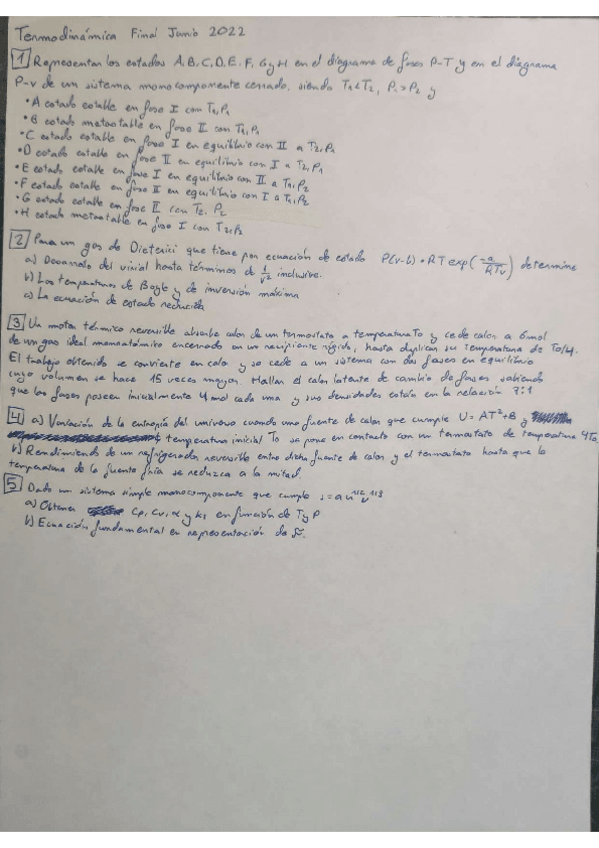 Termodinámica Final Junio 2022
1 Representar los estados A, B, C, D, E, F, G y H en el diagrama de fases P-T y en el diagrama
P-v de un sistema monocomponente cerrado, siendo T₁<T₂, P₁>P₂ y
• A estado estable en fase I con T₁, P₁
• B estado metaestable en fase II con T₁, P₁
• C estado estable en fase I en equilibrio con II a T₂, P₁
• D estado estable en fase II en equilibrio con I a T₂, P₁
• E estado estable en fase I en equilibrio con II a T₁, P₂
• F estado estable en fase II en equilibrio con I a T₁, P₂
• G estado estable en fase II con T₂, P₂
• H estado metaestable en fase I con T₂, P₂
2 Para un gas de Dieterici que tiene por ecuación de estado P(v-b) = RT exp(-a/RTv) determine
a) Desarrollo del virial hasta términos de 1/v² inclusive.
b) Las temperaturas de Boyle y de inversión máxima
c) La ecuación de estado reducida
3 Un motor térmico reversible absbrbe calor de un termostato a temperatura To y cede calor a 6 mol
de un gas ideal monoatómico encerrado en un recipiente rígido, hasta duplicar su temperatura de To/4.
El trabajo obtenido se convierte en calor y se cede a un sistema con dos fases en equilibrio
cuyo volumen se hace 15 veces mayor. Hallar el calor latente de cambio de fases sabiendo
que las fases poseen inicialmente 4 mol cada una y sus densidades están en la relación 7:1
4 a) Variación de la entropía del universo cuando una fuente de calor que cumple U = AT²+B y
temperatura inicial To se pone en contacto con un termostato de temperatura 4To
b) Rendimiento de un refrigerador reversible entre dicha fuente de calor y el termostato hasta que la
temperatura de la fuente fría se reduzca a la mitad.
5 Dado un sistema simple monocomponente que cumple s = a u^1/2 v^1/3
a) Obtener Cp, Cv, α y kT en función de T y P
b) Ecuación fundamental en representación de